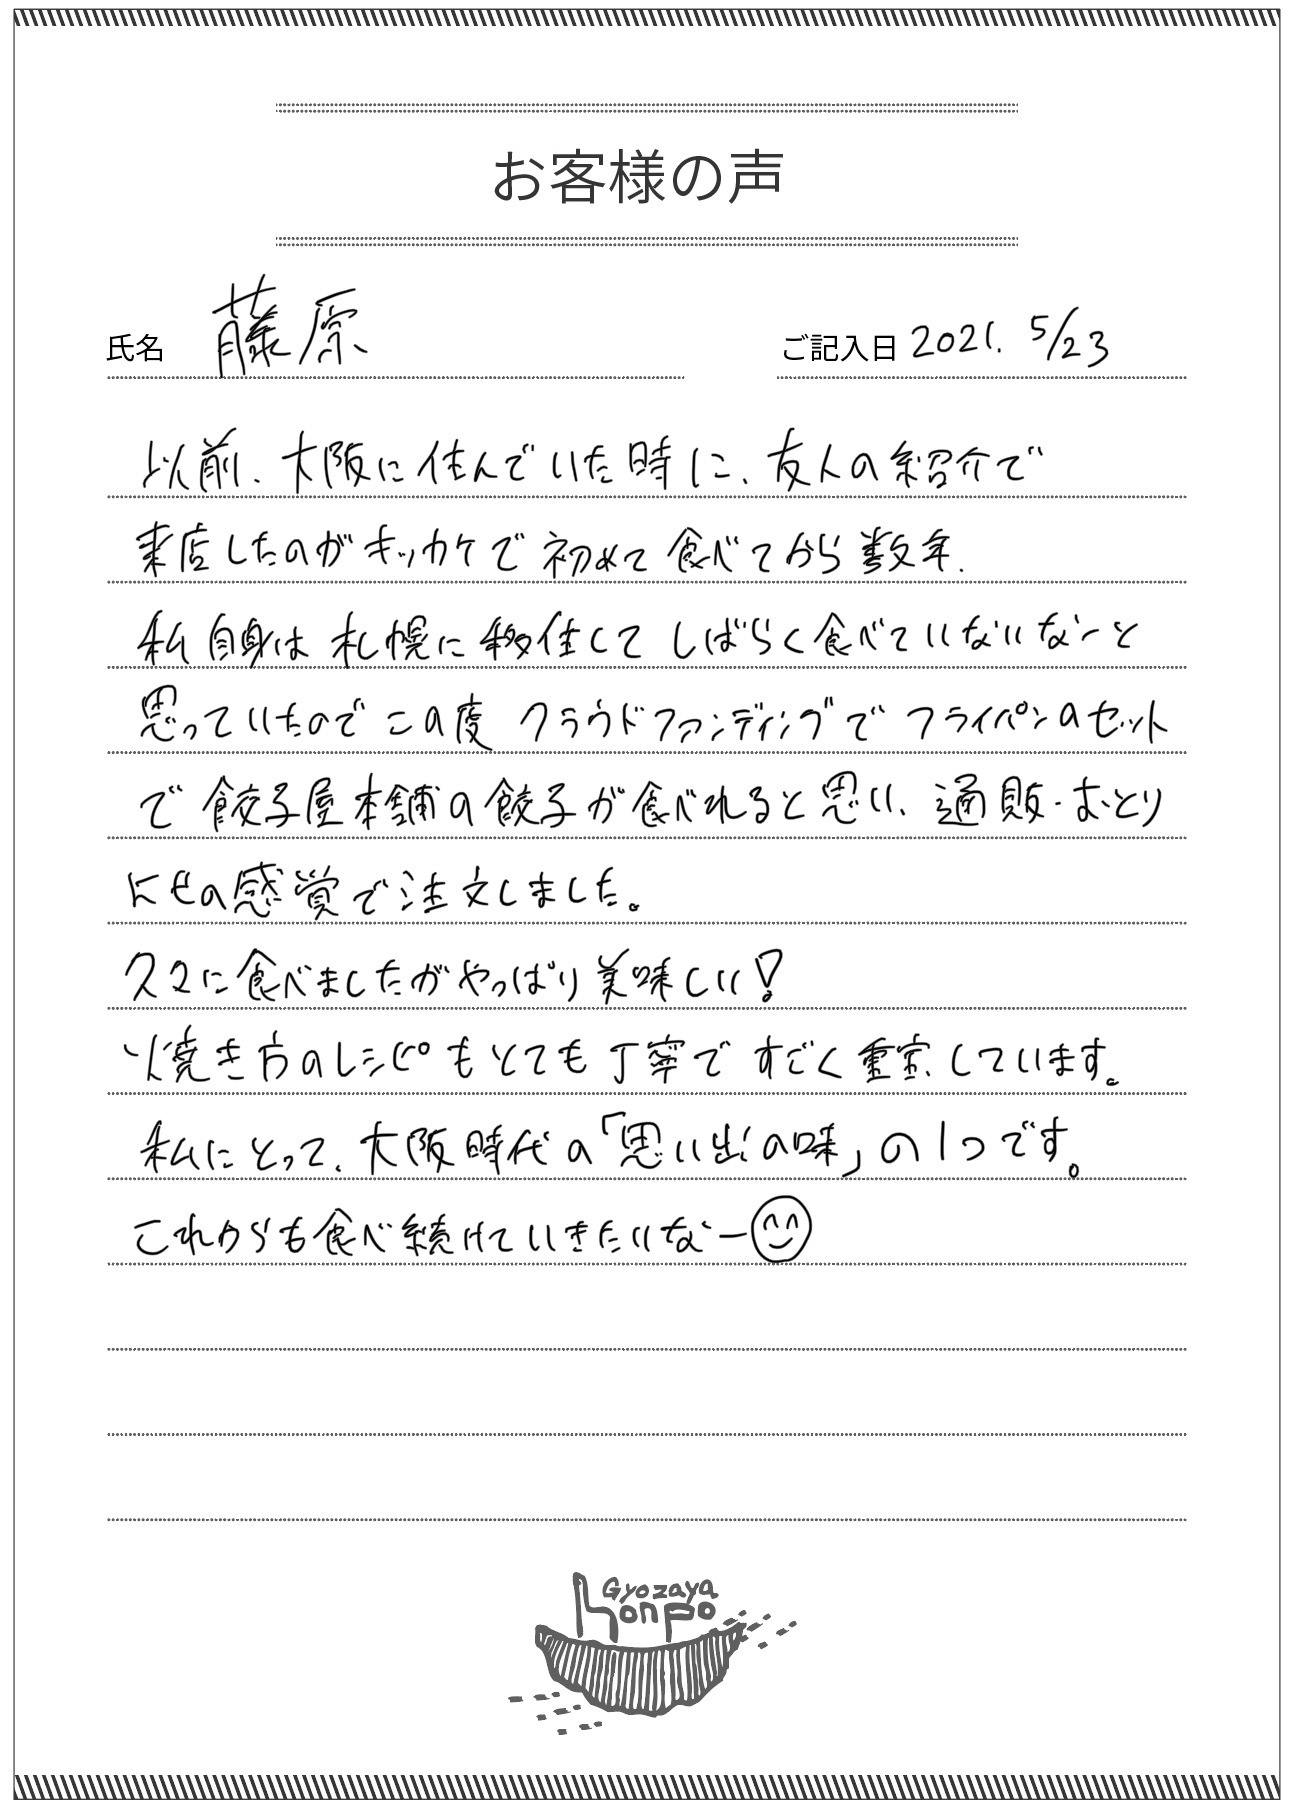 お客様の声
氏名 藤原 ご記入日 2021. 5/23
以前、大阪に住んでいた時に、友人の紹介で
来店したのがキッカケで初めて食べてから数年、
私自身は札幌に移住してしばらく食べていないなーと
思っていたのでこの度 クラウドファンディングでフライパンのセット
で餃子屋本舗の餃子が食べれると思い、通販・おとり
よせの感覚で注文しました。
久々に食べましたがやっぱり美味しい!
焼き方のレシピもとても丁寧ですごく重宝しています。
私にとって、大阪時代の「思い出の味」の1つです。
これからも食べ続けていきたいなー
Gyozaya
honpo